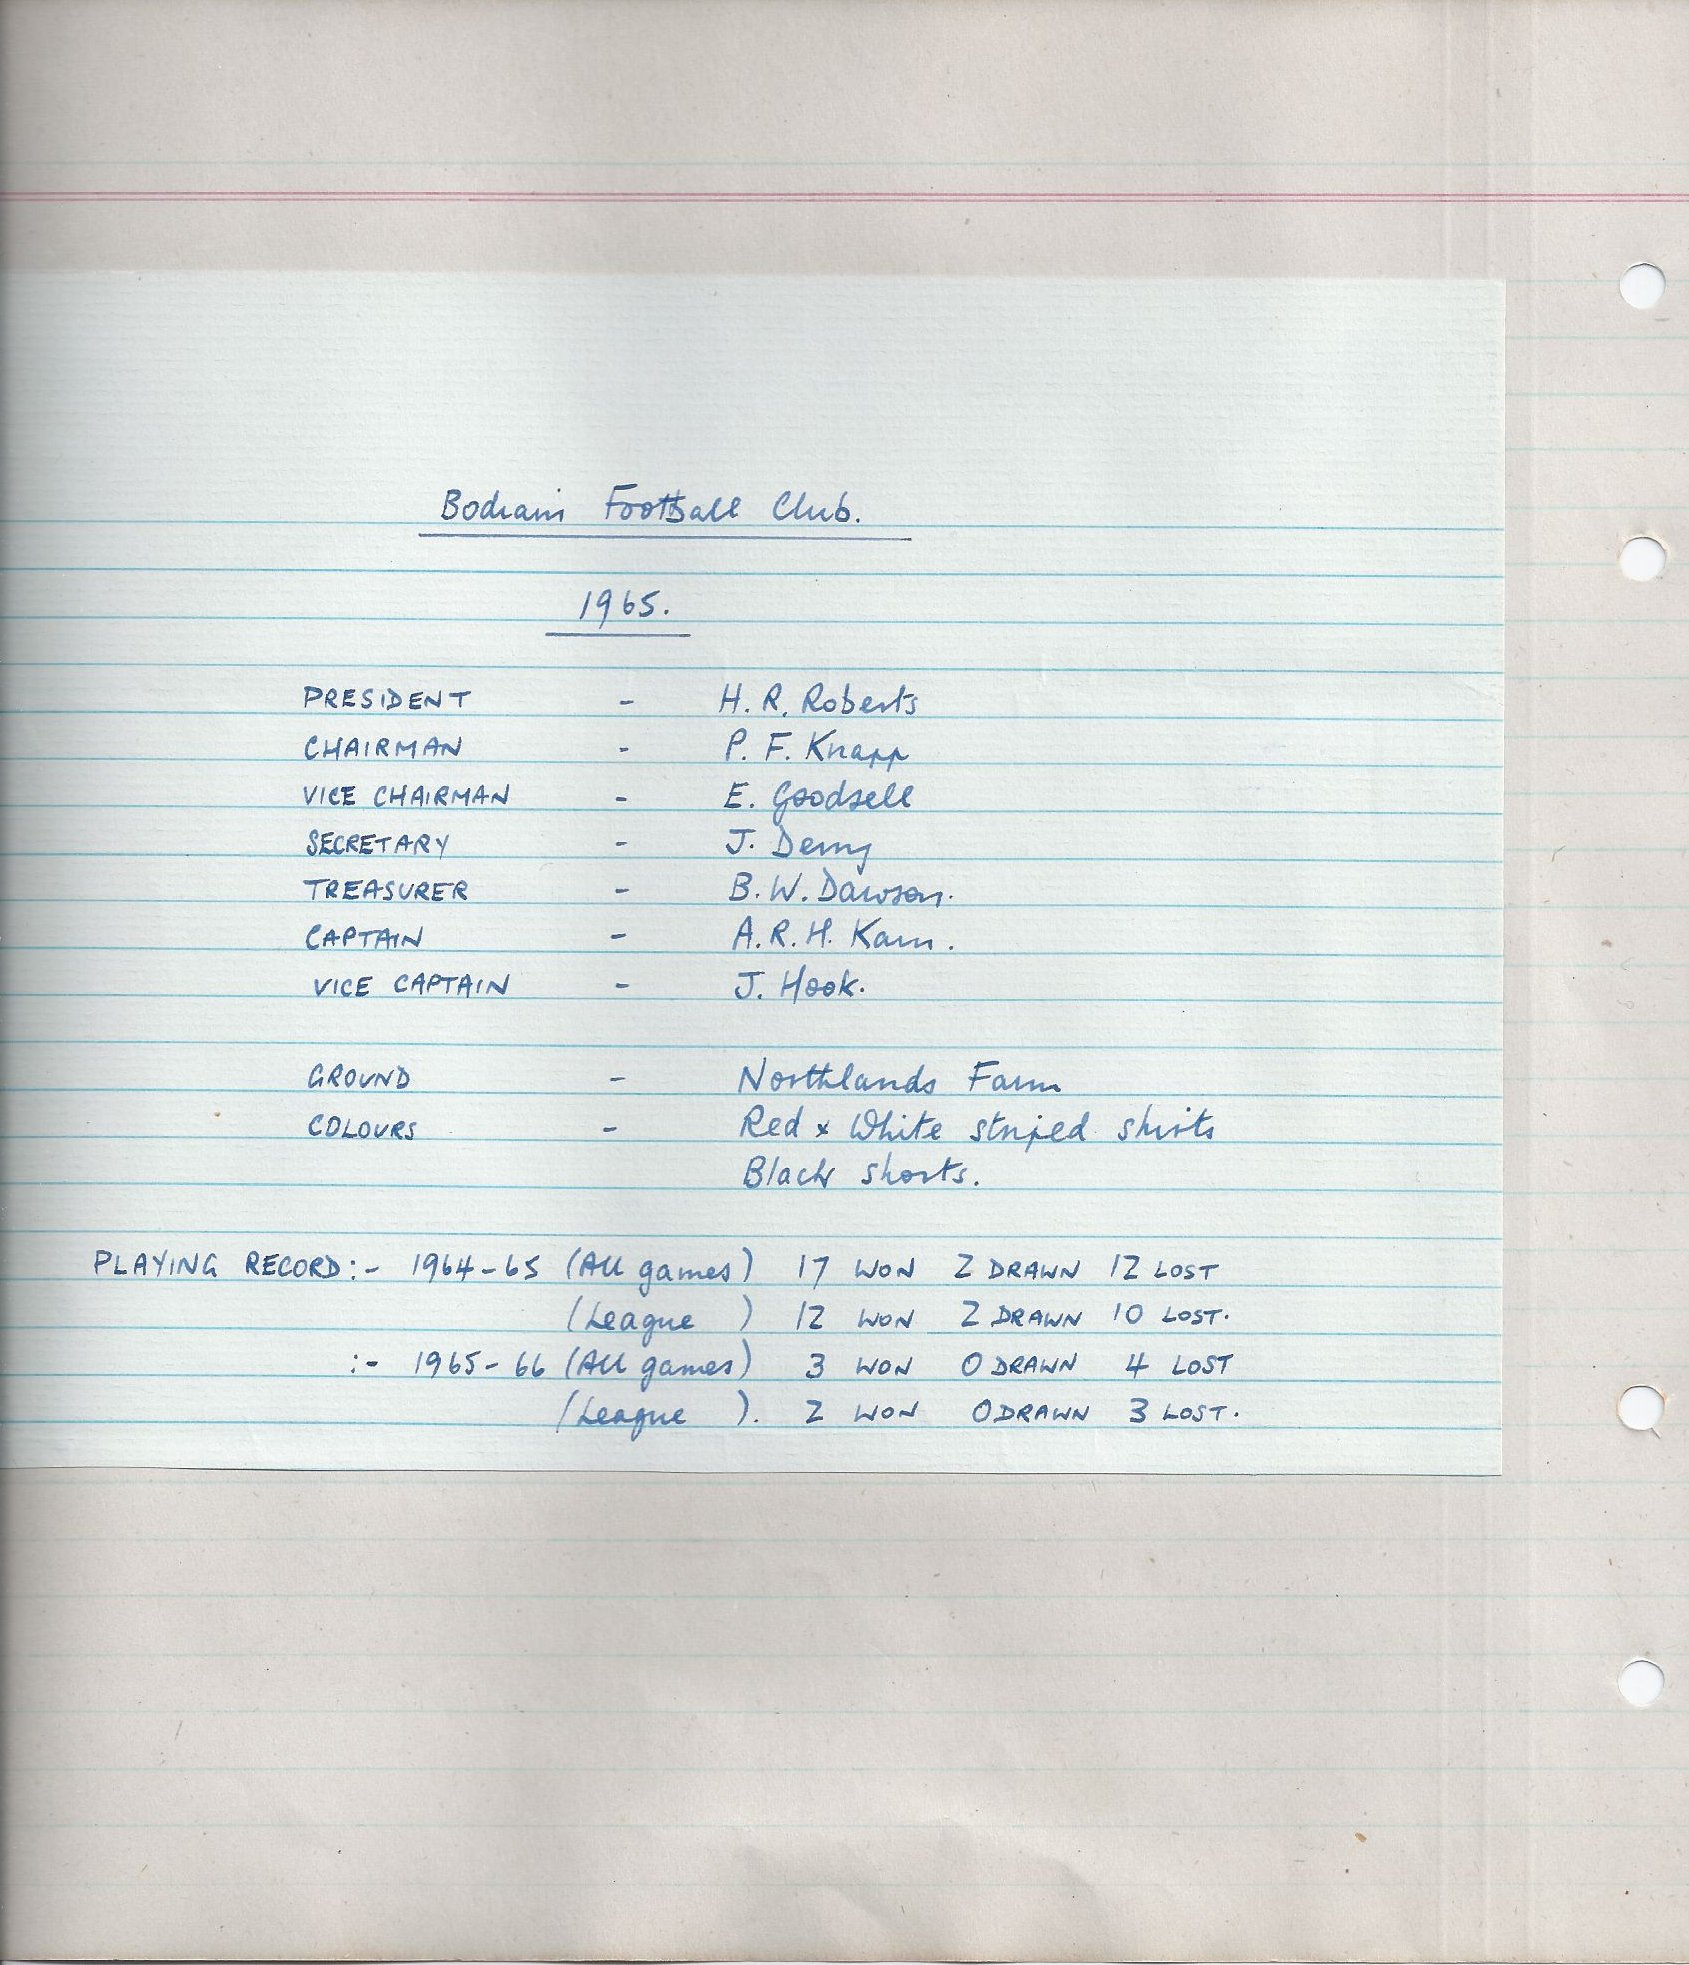 Bodiam Football Club.
1965.
PRESIDENT - H. R. Roberts
CHAIRMAN - P. F. Knapp
VICE CHAIRMAN - E. Goodsell
SECRETARY - J.
TREASURER - B. W. Dawson.
CAPTAIN - A. R. H.
VICE CAPTAIN - J. Hook.
GROUND - Northlands Farm
COLOURS - Red & White striped shirts
Black shorts.
PLAYING RECORD:- 1964-65 (All games) 17 WON 2 DRAWN 12 LOST
(League ) 12 WON 2 DRAWN 10 LOST.
:- 1965-66 (All games) 3 WON 0 DRAWN 4 LOST
(League ). 2 WON 0 DRAWN 3 LOST.